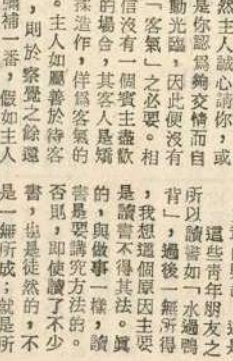 然主人誠心請你,或
是你認爲夠交情而自
動光臨,因此便沒有
「客氣」之必要。相
信沒有一個賓主盡歡
的場合,其客人是矯
揉造作,佯爲客氣的
。主人如屬善於待客
,則於察覺之餘還
彌補一番,假如主人
這些青年朋友之
所以讀書如「水過鴨
背」,過後一無所得
,我想這個原因主要
是讀書不得其法。眞
的,與做事一樣,讀
書是要講究方法的。
否則,即使讀了不少
書,也是徒然的,不
是一無所成;就是所